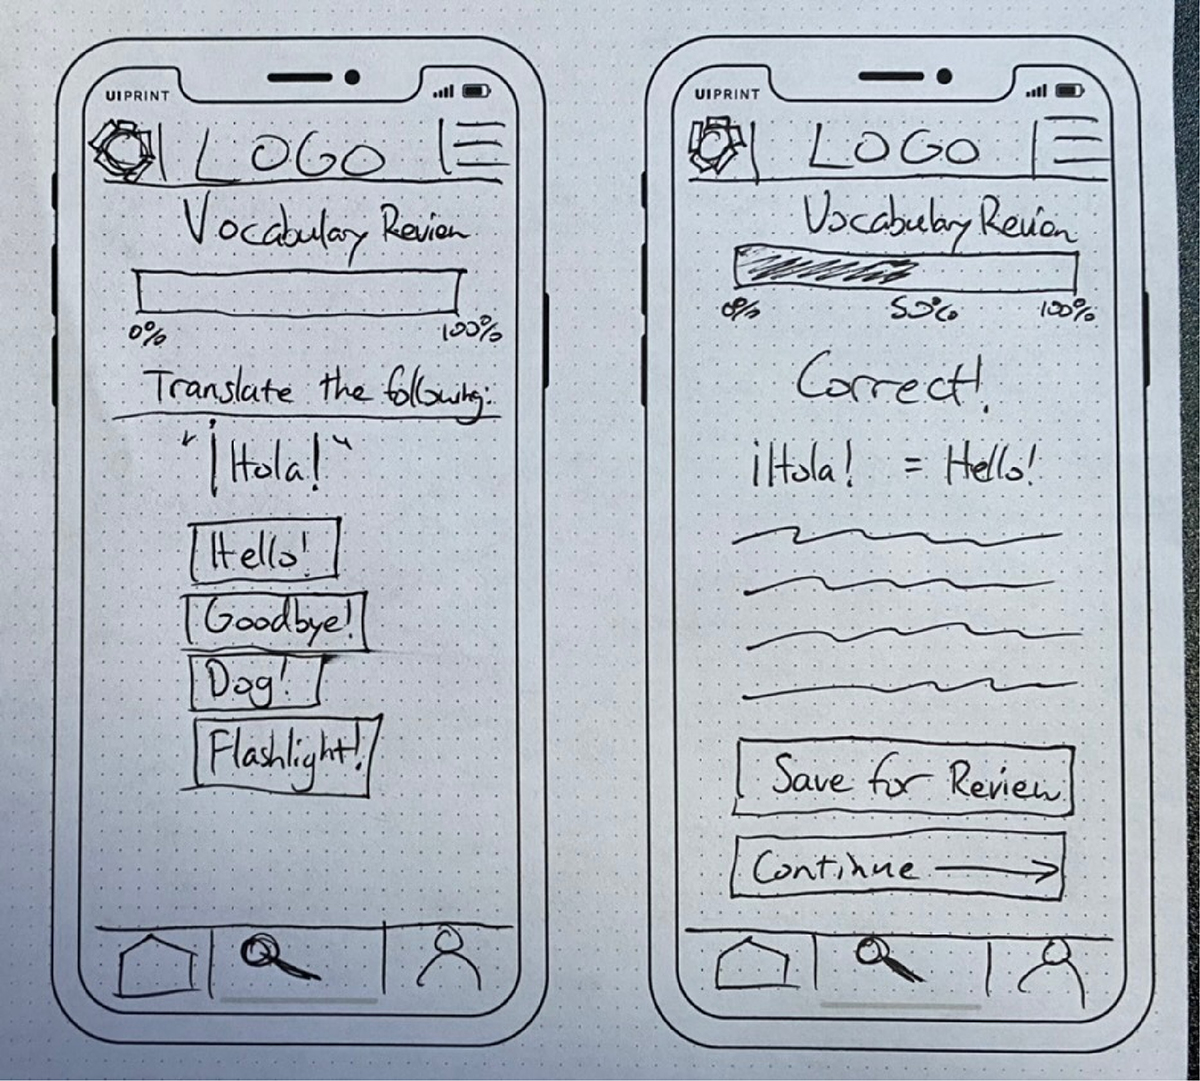 UIPRINT
LOGO
Vocabulary Review
0% 100%
Translate the following:
"¡Hola!"
Hello!
Goodbye!
Dog!
Flashlight!
UIPRINT
LOGO
Vocabulary Review
0% 50% 100%
Correct!
¡Hola! = Hello!
Save for Review
Continue →